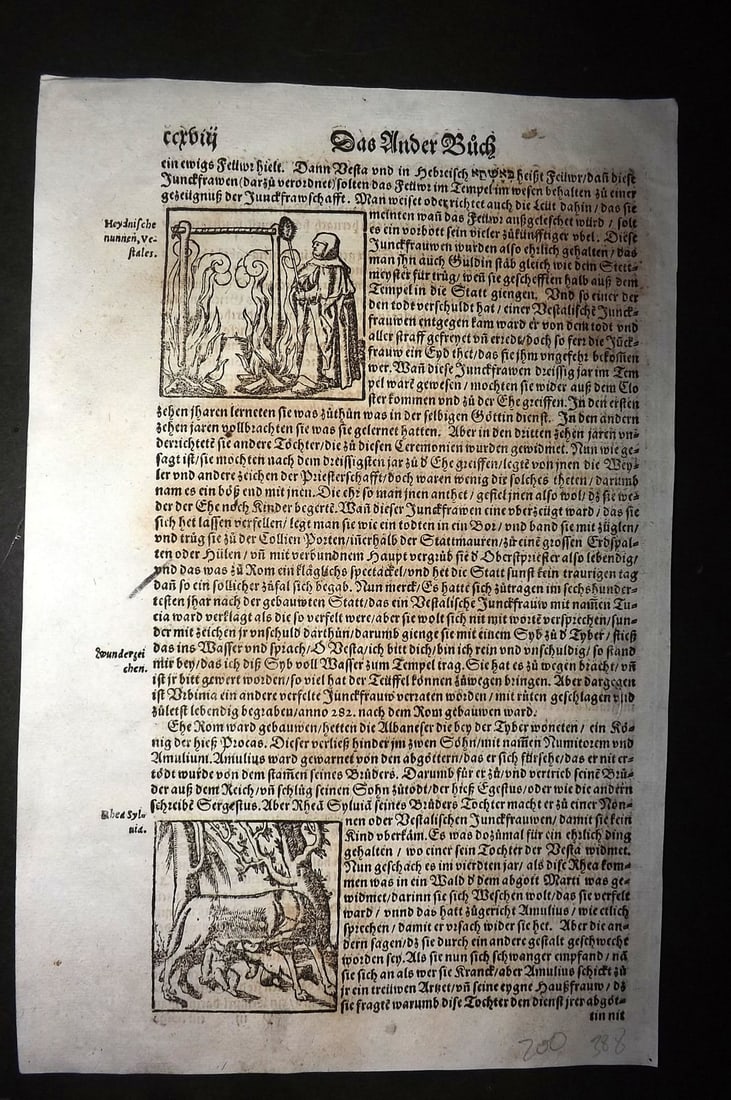 ccxviij
Das Ander Bůch
ein ewigs Feüwr hielt. Dann Vesta vnd in Hebreisch heißt Feüwr/dañ diese
Junckfrawen (darzů verordnet) solten das Feüwr im Tempel im wesen behalten zů einer
gezeügnuß der Junckfrawschafft. Man weiset oder richtet auch die Leüt dahin/das sie
Heydnische
nunnen, Ve-
stales.
meinten wañ das Feüwr außgeleschet würd/solt
es ein vorbott sein vieler zůkünfftiger vbel. Diese
Junckfrauwen wurden also ehrlich gehalten/das
man jhn auch Guldin stäb gleich wie dem Stett-
meyster für trůg/weñ sie geschefften halb auß dem
Tempel in die Statt giengen. Vnd so einer der
den todt verschuldt hat/einer Vestalischē Junck-
frauwen entgegen kam ward er von dem todt vnd
aller straff gefreyet vñ erredt/doch so fert die Jūck-
frauw ein Eyd thet/das sie jhm vngefehr bekoṁen
wer. Wañ diese Junckfrawen dreissig jar im Tem
pel warē gewesen/mochten sie wider auß dem Clo
ster kommen vnd zů der Ehe greiffen. In den ersten
zehen jharen lerneten sie was zůthůn was in der selbigen Göttin dienst. In den andern
zehen jaren vollbrachten sie was sie gelernet hatten. Aber in den dritten zehen jaren vn-
derrichtetē sie andere Töchter/die zů diesen Ceremonien wurden gewidmet. Nun wie ge-
sagt ist/sie mochten nach dem dreissigsten jar zů d' Ehe greiffen/legtē von jnen die Wey-
ler vnd andere zeichen der Priesterschafft/doch waren wenig die solches theten/darumb
nam es ein böß end mit jnen. Die ehr so man jnen anthet/gefiel jnen also wol/dz sie we-
der der Ehe noch Kinder begertē. Wañ dieser Junckfrawen eine vberzeügt ward/das sie
sich het lassen verfellen/legt man sie wie ein todten in ein Bor/vnd band sie mit züglen/
vnd trůg sie zů der Collien Porten/inerhalb der Stattmauren/zů einē grossen Erdspal-
ten oder Hülen/vñ mit verbundnem Haupt vergrůb sie d' Oberstpriester also lebendig/
vnd das was zů Rom ein kläglichs spectäckel/vnd het die Statt sunst kein traurigen tag
dañ so ein sollicher zůfal sich begab. Nun merck/Es hatte sich zůtragen im sechshunder-
testen jhar nach der gebauwten Statt/das ein Vestalische Junckfrauw mit naṁen Tu-
cia ward verklagt als die so verfelt were/aber sie wolt sich nit mit wortē versprechen/sun-
der mit zeichen jr vnschuld darthůn/darumb gienge sie mit einem Syb zů d' Tyber/stieß
Wunderzei
chen.
das ins Wasser vnd sprach/O Vesta/ich bitt dich/bin ich rein vnd vnschuldig/so stand
mir bey/das ich diß Syb voll Wasser zum Tempel trag. Sie hat es zů wegen bracht/vñ
ist jr bitt gewert worden/so viel hat der Teüffel können zůwegen bringen. Aber dargegen
ist Vrbinia ein andere verfelte Junckfrauw verraten worden/mit růten geschlagen vnd
zůletst lebendig begraben/anno 282. nach dem Rom gebauwen ward.
Ehe Rom ward gebauwen/hetten die Albaneser die bey der Tyber woneten/ein Kö-
nig der hieß Procas. Dieser verließ hinder jm zwen Söhn/mit naṁen Numitorem vnd
Amulium. Amulius ward gewarnet von den abgöttern/das er sich fürsehe/das er nit er-
tödt wurde von dem staṁen seines Brůders. Darumb für er zů/vnd vertrieb seinē Brů-
der auß dem Reich/vñ schlůg seinen Sohn zůtodt/der hieß Egestus/oder wie die andern
schreibē Sergestus. Aber Rheā Syluiā seines Brůders Tochter macht er zů einer Non-
Rhea Syl-
uia.
nen oder Vestalischen Junckfrauwen/damit sie kein
Kind vberkäm. Es was dozůmal für ein ehrlich ding
gehalten/wo einer sein Tochter der Vestā widmet.
Nun geschach es im vierdten jar/als dise Rhea kom-
men was in ein Wald d' dem abgott Marti was ge-
widmet/darinn sie sich Weschen wolt/das sie verfelt
ward/vnnd das hatt zůgericht Amulius/wie etlich
sprechen/damit er vrsach wider sie het. Aber die an-
dern sagen/dz sie durch ein andere gestalt geschwecht
worden sey. Als sie nun sich schwanger empfand/nā
sie sich an als wer sie Kranck/aber Amulius schickt zů
jr ein treüwen Artzet/vñ seine eygne Haußfrauw/dz
sie fragtē warumb dise Tochter den dienst jrer abgöt-
tin nit
200 388